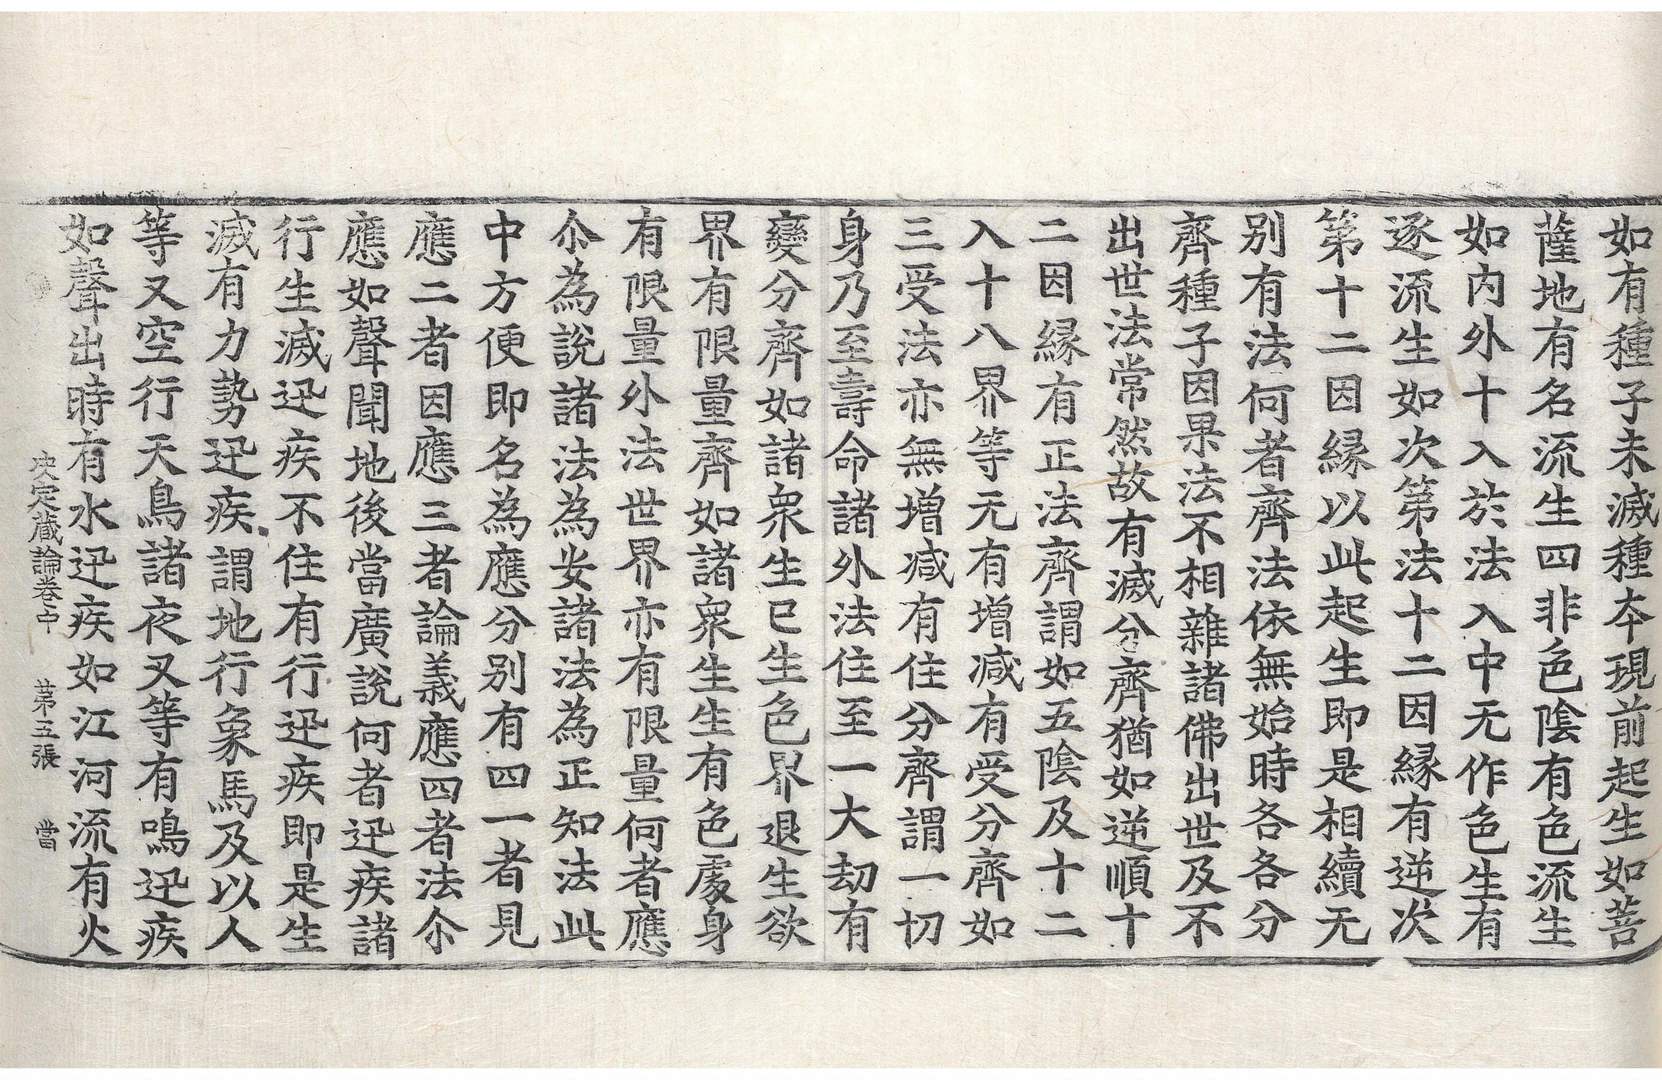 如有種子未滅種本現前起生如菩
薩地有名流生四非色陰有色流生
如内外十入於法入中无作色生有
逐流生如次第法十二因縁有逆次
第十二因縁以此起生即是相續无
别有法何者齊法依無始時各各分
齊種子因果法不相雜諸佛出世及不
出世法常然故有滅分齊猶如逆順十
二因縁有正法齊謂如五陰及十二
入十八界等无有增减有受分齊如
三受法亦無增减有住分齊謂一切
身乃至壽命諸外法住至一大劫有
變分齊如諸衆生已生色界退生欲
界有限量齊如諸衆生生有色處身
有限量外法世界亦有限量何者應
尒為說諸法為安諸法為正知法此
中方便即名為應分别有四一者見
應二者因應三者論義應四者法尒
應如聲聞地後當廣說何者迅疾諸
行生滅迅疾不住有行迅疾即是生
滅有力勢迅疾謂地行象馬及以人
等又空行天鳥諸夜叉等有鳴迅疾
如聲出時有水迅疾如江河流有火
决定蔵論卷中 苐五張 當